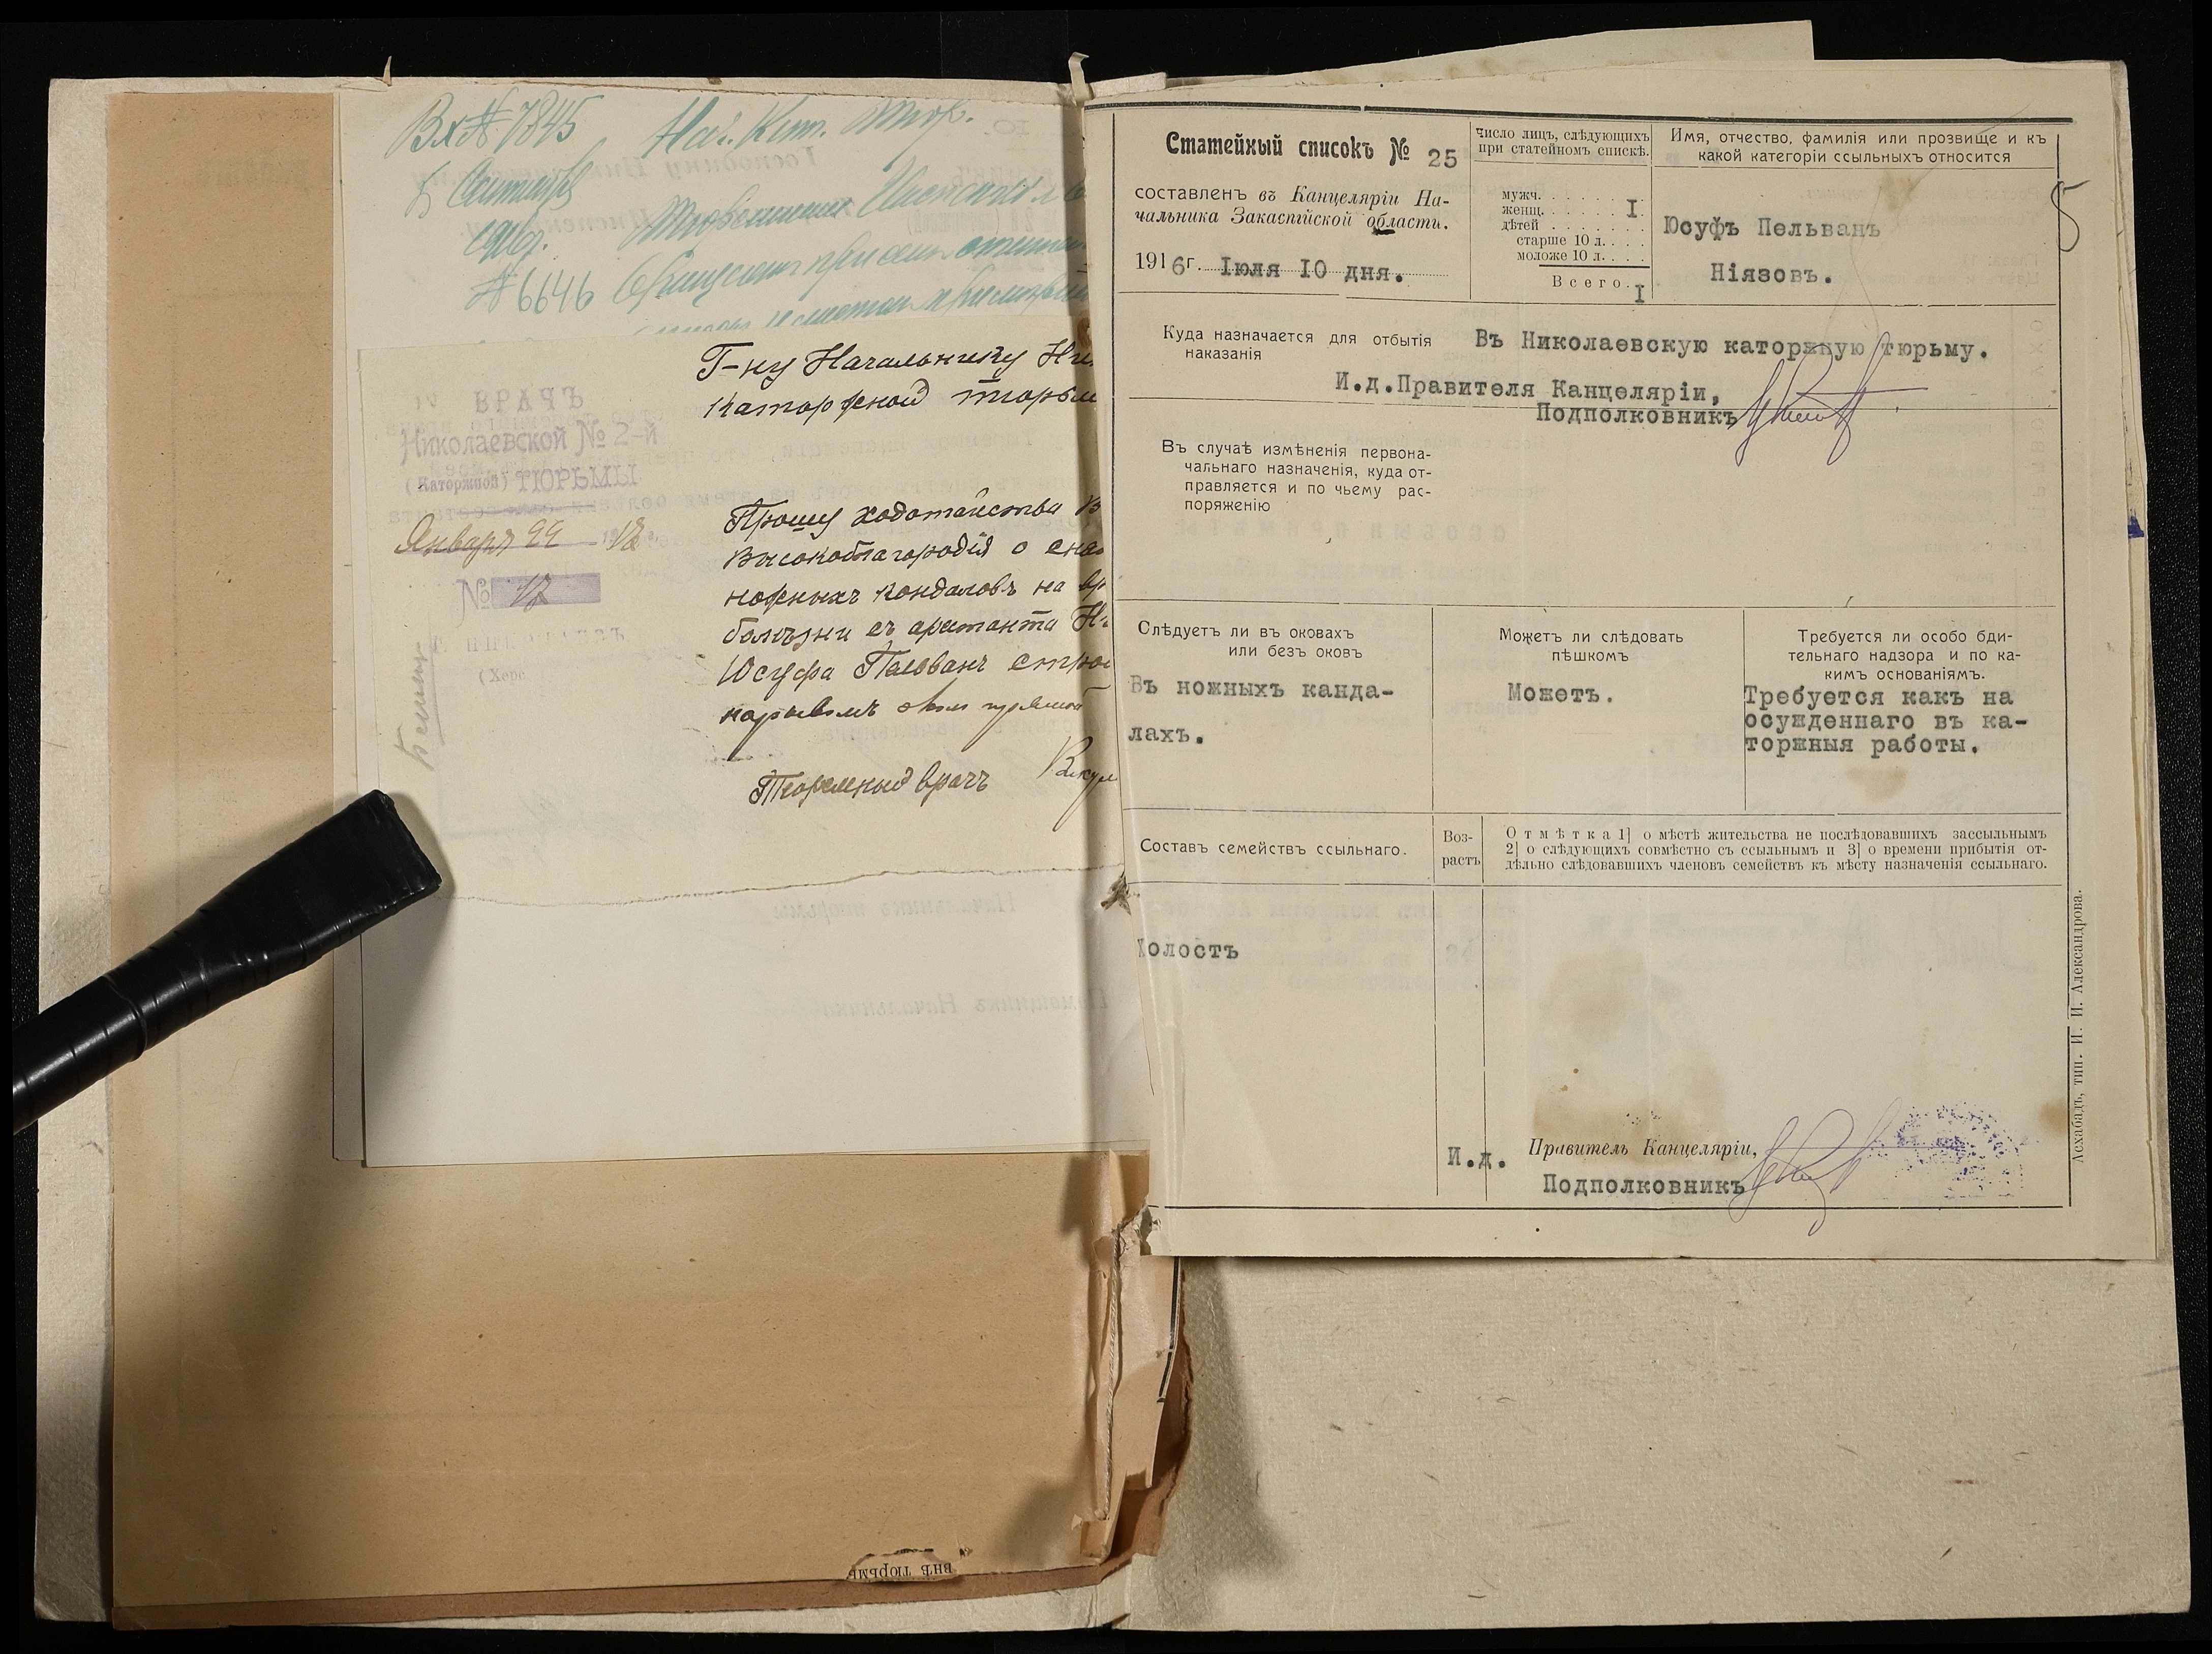 Вх № 7845
Нач. Кат. Тюр.
6 Сентября
1916г.
№ 6646
Г-ну Начальнику
Каторжной
ВРАЧЪ
Николаевской № 2-й
(Каторжной) ТЮРЬМЫ
Января 22 1918
№ 12
Прошу ходатайства
Высокоблагородія о
ножныхъ кандаловъ на
болѣзни съ арестанта
Юсуфа Палванъ
нарывомъ
Тюремный врачъ
внѣ тюрьмы
Статейный списокъ № 25
составленъ въ Канцеляріи На-
чальника Закаспійской области.
1916г. Іюля 10 дня.
Число лицъ, слѣдующихъ
при статейномъ спискѣ.
мужч. . . . . . . . I
женщ. . . . . . . .
дѣтей . . . . . . .
старше 10 л. . . .
моложе 10 л. . . .
Всего. I
Имя, отчество, фамилія или прозвище и къ
какой категоріи ссыльныхъ относится
Юсуфъ Пельванъ
Ніязовъ.
5
Куда назначается для отбытія
наказанія
Въ Николаевскую каторжную тюрьму.
И.д.Правителя Канцеляріи,
Подполковникъ
Въ случаѣ измѣненія первона-
чальнаго назначенія, куда от-
правляется и по чьему рас-
поряженію
Слѣдуетъ ли въ оковахъ
или безъ оковъ
Въ ножныхъ канда-
лахъ.
Можетъ ли слѣдовать
пѣшкомъ
Можетъ.
Требуется ли особо бди-
тельнаго надзора и по ка-
кимъ основаніямъ.
Требуется какъ на
осужденнаго въ ка-
торжныя работы.
Составъ семействъ ссыльнаго.
Воз-
растъ
Отмѣтка 1] о мѣстѣ жительства не послѣдовавшихъ зассыльнымъ
2] о слѣдующихъ совмѣстно съ ссыльнымъ и 3] о времени прибытія от-
дѣльно слѣдовавшихъ членовъ семействъ къ мѣсту назначенія ссыльнаго.
Холостъ
И.д. Правитель Канцеляріи,
Подполковникъ
Асхабадъ, тип. И. И. Александрова.